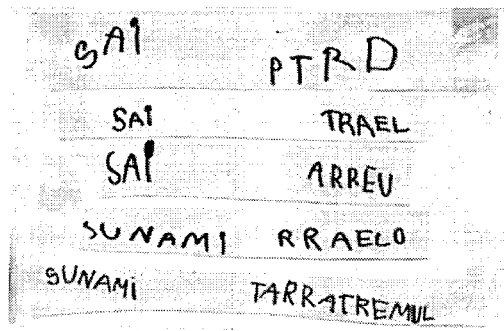 SAI PTRD
SAI TRAEL
SAI ARREU
SUNAMI RRAELO
SUNAMI TARRATREMUL